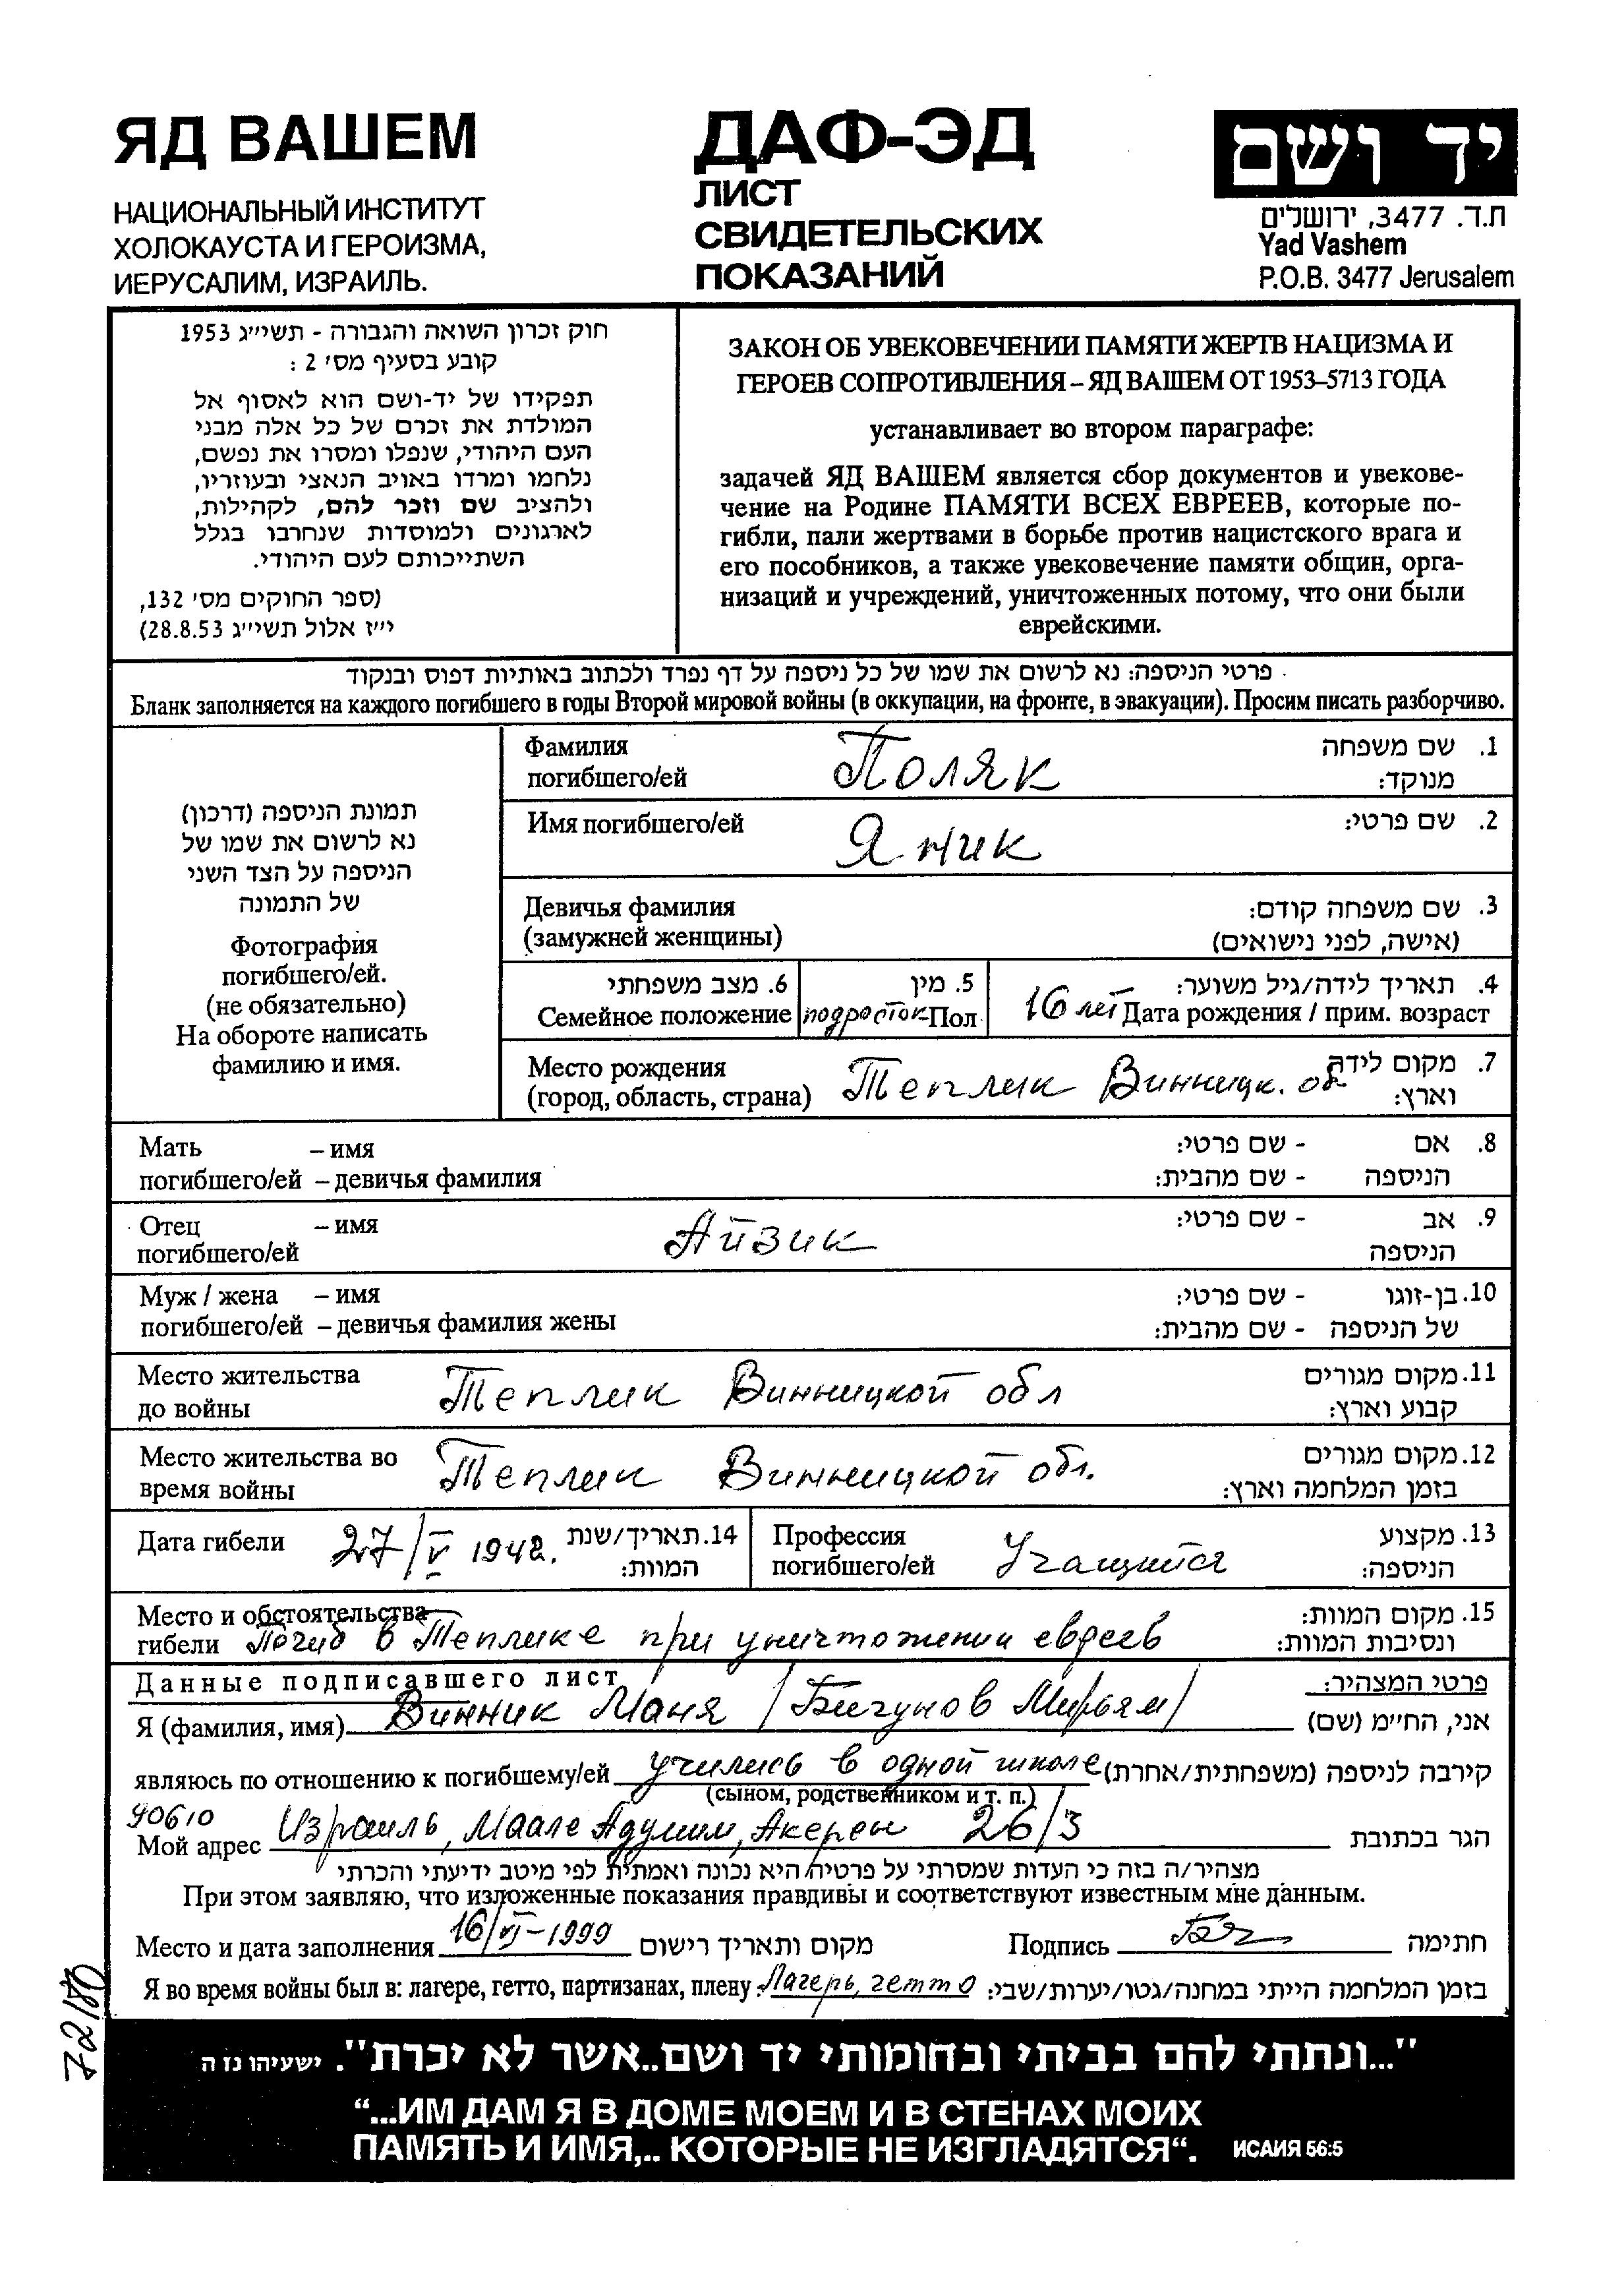 ЯД ВАШЕМ
НАЦИОНАЛЬНЫЙ ИНСТИТУТ
ХОЛОКАУСТА И ГЕРОИЗМА,
ИЕРУСАЛИМ, ИЗРАИЛЬ.
ДАФ-ЭД
ЛИСТ
СВИДЕТЕЛЬСКИХ
ПОКАЗАНИЙ
יד ושם
ת.ד. 3477, ירושלים
Yad Vashem
P.O.B. 3477 Jerusalem
חוק זכרון השואה והגבורה - תשי״ג 1953
קובע בסעיף מס׳ 2 :
תפקידו של יד-ושם הוא לאסוף אל
המולדת את זכרם של כל אלה מבני
העם היהודי, שנפלו ומסרו את נפשם,
נלחמו ומרדו באויב הנאצי ובעוזריו,
ולהציב שם וזכר להם, לקהילות,
לארגונים ולמוסדות שנחרבו בגלל
השתייכותם לעם היהודי.
(ספר החוקים מס׳ 132,
י״ז אלול תשי״ג 28.8.53)
ЗАКОН ОБ УВЕКОВЕЧЕНИИ ПАМЯТИ ЖЕРТВ НАЦИЗМА И
ГЕРОЕВ СОПРОТИВЛЕНИЯ – ЯД ВАШЕМ ОТ 1953–5713 ГОДА
устанавливает во втором параграфе:
задачей ЯД ВАШЕМ является сбор документов и увекове-
чение на Родине ПАМЯТИ ВСЕХ ЕВРЕЕВ, которые по-
гибли, пали жертвами в борьбе против нацистского врага и
его пособников, а также увековечение памяти общин, орга-
низаций и учреждений, уничтоженных потому, что они были
еврейскими.
פרטי הניספה: נא לרשום את שמו של כל ניספה על דף נפרד ולכתוב באותיות דפוס ובנקוד
Бланк заполняется на каждого погибшего в годы Второй мировой войны (в оккупации, на фронте, в эвакуации). Просим писать разборчиво.
תמונת הניספה (דרכון)
נא לרשום את שמו של
הניספה על הצד השני
של התמונה
Фотография
погибшего/ей.
(не обязательно)
На обороте написать
фамилию и имя.
Фамилия Поляк 1. שם משפחה
погибшего/ей מנוקד:
Имя погибшего/ей Яник 2. שם פרטי:
Девичья фамилия 3. שם משפחה קודם:
(замужней женщины) (אישה, לפני נישואים)
6. מצב משפחתי 5. מין 4. תאריך לידה/גיל משוער:
Семейное положение подросток Пол 16 лет Дата рождения / прим. возраст
Место рождения 7. מקום לידה
(город, область, страна) Теплик Винницк. об וארץ:
Мать – имя 8. אם - שם פרטי:
погибшего/ей – девичья фамилия הניספה - שם מהבית:
Отец – имя Айзик 9. אב - שם פרטי:
погибшего/ей הניספה
Муж / жена – имя 10. בן-זוגו - שם פרטי:
погибшего/ей – девичья фамилия жены של הניספה - שם מהבית:
Место жительства Теплик Винницкой обл 11. מקום מגורים
до войны קבוע וארץ:
Место жительства во Теплик Винницкой обл. 12. מקום מגורים
время войны בזמן המלחמה וארץ:
Дата гибели 27/V 1942. 14. תאריך/שנת
המוות:
Профессия Учащийся 13. מקצוע
погибшего/ей הניספה:
Место и обстоятельства 15. מקום המוות:
гибели Погиб в Теплике при уничтожении евреев ונסיבות המוות:
Данные подписавшего лист פרטי המצהיר:
Я (фамилия, имя) Винник Маня /Бигунов Мирьям/ אני, הח״מ (שם)
являюсь по отношению к погибшему/ей учились в одной школе קירבה לניספה (משפחתית/אחרת)
(сыном, родственником и т. п.)
90610
Мой адрес Израиль, Маале Адумим, Акерен 26/3 הגר בכתובת
מצהיר/ה בזה כי העדות שמסרתי על פרטיה היא נכונה ואמתית לפי מיטב ידיעתי והכרתי
При этом заявляю, что изложенные показания правдивы и соответствуют известным мне данным.
Место и дата заполнения 16/VI-1999 מקום ותאריך רישום Подпись חתימה
Я во время войны был в: лагере, гетто, партизанах, плену: Лагерь, гетто בזמן המלחמה הייתי במחנה/גטו/יערות/שבי:
72/80
"...ונתתי להם בביתי ובחומותי יד ושם..אשר לא יכרת". ישעיהו נז ה
“...ИМ ДАМ Я В ДОМЕ МОЕМ И В СТЕНАХ МОИХ
ПАМЯТЬ И ИМЯ,.. КОТОРЫЕ НЕ ИЗГЛАДЯТСЯ“. ИСАИЯ 56:5